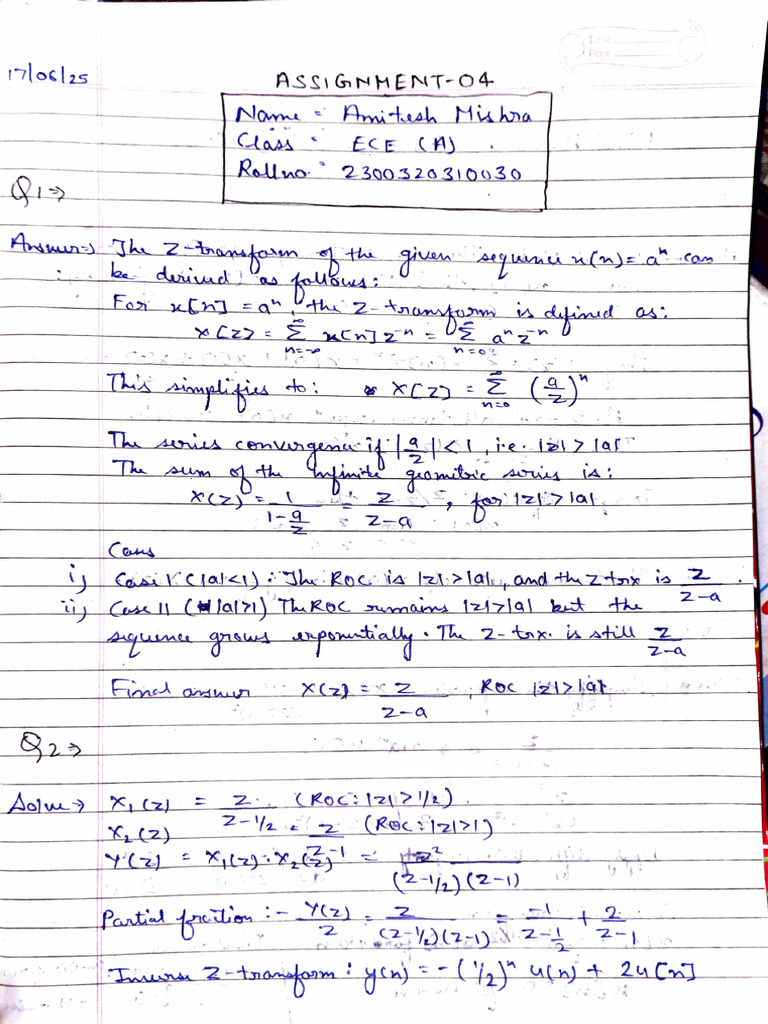 Date
Page
17/06/25
ASSIGNMENT-04
Name = Amitesh Mishra
Class = ECE (A)
Rollno = 2300320310030
Q1⇒
Answer⇒ The Z-transform of the given sequence x(n) = aⁿ can
be derived as follows:
For x[n] = aⁿ, the Z-transform is defined as:
X[Z] = ∑_{n=-∞}^{∞} x[n] z⁻ⁿ = ∑_{n=0}^{∞} aⁿ z⁻ⁿ
This simplifies to: X[Z] = ∑_{n=0}^{∞} (a/z)ⁿ
The series convergence if |a/z| < 1, i.e. |z| > |a|
The sum of the infinite geometric series is:
X(Z) = 1/(1-a/z) = z/(z-a), for |z| > |a|
Cans
i) Case I (|a|<1): The ROC is |z| > |a|, and the Z trx is z/(z-a).
ii) Case II (|a|>1) The ROC remains |z|>|a| but the
sequence grows exponentially. The Z-trx. is still z/(z-a)
Final answer X(z) = z/(z-a), ROC |z| > |a|
Q2⇒
Solve→ X₁(z) = z/(z-1/2) (ROC: |z| > 1/2)
X₂(z) = z/(z-1) (ROC: |z|>1)
Y(z) = X₁(z) · X₂(z) = z²/((z-1/2)(z-1))
Partial fraction :- Y(z)/z = z/((z-1/2)(z-1)) = -1/(z-1/2) + 2/(z-1)
Inverse Z-transform: y(n) = -(1/2)ⁿ u(n) + 2u[n]